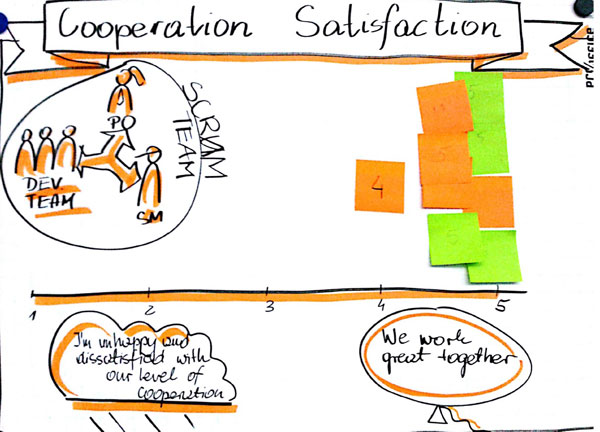 Cooperation Satisfaction
SCRUM
TEAM
PO
DEV.
TEAM
SM
4
5
5
1 2 3 4 5
I'm unhappy and
dissatisfied with
our level of
cooperation
We work
great together